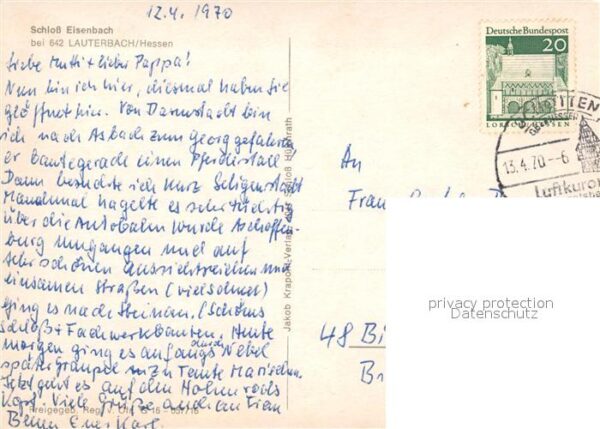 12.4. 1970
Schloß Eisenbach
bei 642 LAUTERBACH/Hessen
Liebe Mutti + lieber Pappa!
Nun bin ich hier, diesmal haben sie
geöffnet hier. Von Darmstadt bin
ich nach Asbach zum Georg gefahren,
er baute gerade einen Pferdestall.
Dann besuchte ich kurz Seligenstadt
Manchmal hagelte es sehr tüchtig
über die Autobahn wurde Aschaffen-
burg umgangen und auf
sehr schönen aussichtsreichen und
einsamen Straßen (viel Schnee)
ging es nach Steinau. (Schönes
Schloß + Fachwerkbauten. Heute
morgen ging es anfangs durch Nebel
später
Jetzt geht es auf den Hohenrods
Kopf. Viele Grüße auch an Frau
Euer Karl.
Freigegeb. Reg. v.
Jakob Krapohl-Verlag, Schloß Hülchrath
An
Frau
48 Bi
B
Deutsche Bundespost
20
LORSCH/HESSEN
SCHOTTEN
13.4.70-6
Luftkurort
privacy protection
Datenschutz